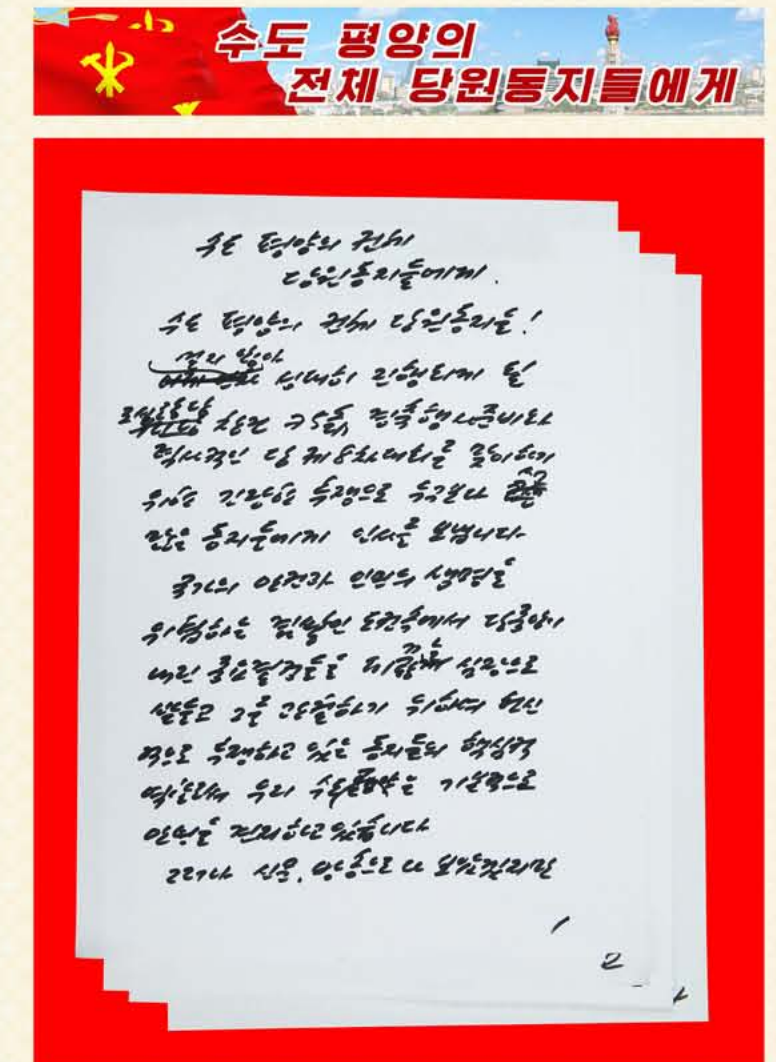 수도 평양의
전체 당원동지들에게
수도 평양의 전체
당원동지들에게.
수도 평양의 전체 당원동지들!
멀지 않아
성대히 진행되게 될
조선로동당
창건 75돐 경축행사준비와
력사적인 당 제8차대회를 맞이하기
위한 긴장한 투쟁으로 누구보다 수고
많은 동지들에게 인사를 보냅니다.
국가의 안전과 인민의 생명을
위협하는 겹쌓인 도전속에서 당중앙이
내린 중요결정들을 피끓는 심장으로
받들고 그를 관철하기 위하여 헌신
적으로 투쟁하고 있는 동지들의 핵심적
역할로써 우리 수도 평양은 기본적으로
안정을 견지하고 있습니다
그러나 신문, 방송으로 다 보았겠지만
1
2